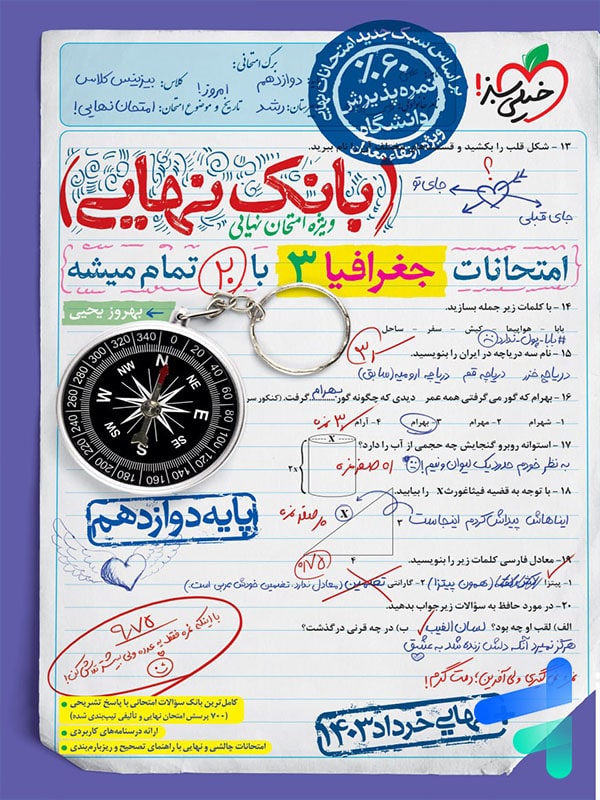 خیلی سبز!
بر اساس سبک جدید امتحانات نهایی
%۶۰
نمره پذیرش
دانشگاه
ویژه ارتقاء معدل
برگ امتحانی:
دوازدهم
کلاس: بیزینس کلاس
امروز!
رشد
تاریخ و موضوع امتحان: امتحان نهایی!
۱۳ - شکل قلب را بکشید و
نام ببرید.
؟
جای تو
جای قبلی
(بانک نهایی)
ویژه امتحان نهایی
امتحانات جغرافیا ۳ با ۲۰ تمام میشه
بهروز یحیی
۱۴ - با کلمات زیر جمله بسازید.
بابا - هواپیما - کیش - سفر - ساحل
#بابا-پول-ندارد
۱۵ - نام سه دریاچه در ایران را بنویسید.
دریاچه خزر دریاچه قم دریاچه ارومیه (سابق)
۱۶ - بهرام که گور می‌گرفتی همه عمر دیدی که چگونه گور بهرام گرفت. (کنکور سر
۱- شهرام ۲- مهرام ۳- بهرام ۴- آرام
۳/ نمره
۱۷ - استوانه روبرو گنجایش چه حجمی از آب را دارد؟
به نظر خودم حدود یک لیوان و نیم!
صفر نمره
X
2X
۱۸ - با توجه به قضیه فیثاغورث X را بیابید.
ایناهاش پیداش کردم اینجاست
X
۳
۴
صفر نمره
۱۹- معادل فارسی کلمات زیر را بنویسید.
۰/۷۵
۱- پیتزا (همون پیتزا) ۲- گارانتی تضمین (معادل ندارد. تضمین خودش عربی است.)
۲۰- در مورد حافظ به سؤالات زیر جواب بدهید.
الف) لقب او چه بود؟ لسان الغیب ب) در چه قرنی درگذشت؟
هرگز نمیرد آنکه دلش زنده شد به عشق
ولی آفرین؛ دمت گرم!
پایه دوازدهم
۹/۷۵
با اینکه نمره فقط یه عدده ولی بیشتر تلاش کن!
کامل‌ترین بانک سؤالات امتحانی با پاسخ تشریحی
(۷۰۰ پرسش امتحان نهایی و تألیفی تیپ‌بندی شده)
ارائه درسنامه‌های کاربردی
امتحانات چالشی و نهایی با راهنمای تصحیح و ریزبارم‌بندی
نهایی خرداد ۱۴۰۳
0 20 40 60 80 100 120 140 160 180 200 220 240 260 280 300 320 340
N NE E SE S SW W NW